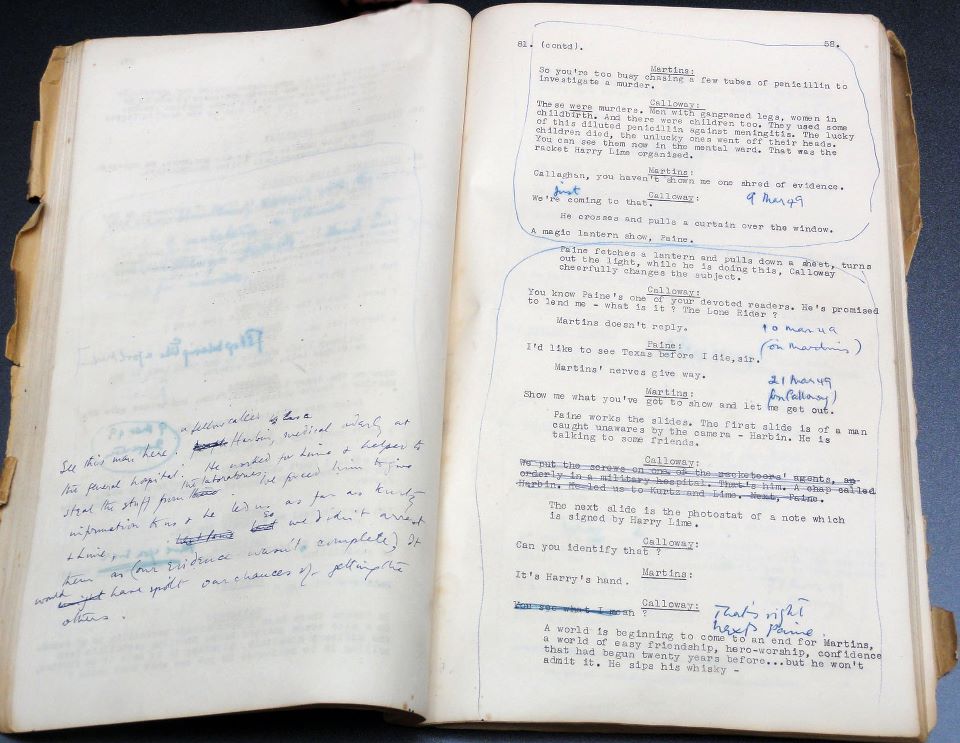 See this man here. a fellow called
Harbin, medical orderly at
the general hospital. He worked for Lime & helped to
steal the stuff from the laboratories. We forced him to give
information to us & he led us as far as Kurtz
& Lime. But we didn't arrest
them as (our evidence wasn't complete) It
would might have spoilt our chances of getting the
others.
81. (contd). 58.
Martins:
So you're too busy chasing a few tubes of penicillin to
investigate a murder.
Calloway:
These were murders. Men with gangrened legs, women in
childbirth. And there were children too. They used some
of this diluted penicillin against meningitis. The lucky
children died, the unlucky ones went off their heads.
You can see them now in the mental ward. That was the
racket Harry Lime organised.
Martins:
Callaghan, you haven't shown me one shred of evidence.
Calloway: 9 Mar 49
We're just coming to that.
He crosses and pulls a curtain over the window.
A magic lantern show, Paine.
Paine fetches a lantern and pulls down a sheet, turns
out the light, while he is doing this, Calloway
cheerfully changes the subject.
Calloway:
You know Paine's one of your devoted readers. He's promised
to lend me - what is it ? The Lone Rider ?
Martins doesn't reply. 10 Mar 49
Paine: (on Martins)
I'd like to see Texas before I die,sir.
Martins' nerves give way. 21 Mar 49
Martins: (on Calloway)
Show me what you've got to show and let me get out.
Paine works the slides. The first slide is of a man
caught unawares by the camera - Harbin. He is
talking to some friends.
Calloway:
We put the screws on one of the racketeers' agents, an
orderly in a military hospital. That's him. A chap called
Harbin. He led us to Kurtz and Lime. Next, Paine.
The next slide is the photostat of a note which
is signed by Harry Lime.
Calloway:
Can you identify that ?
Martins:
It's Harry's hand.
Calloway: That's right
You see what I mean ? next Paine.
A world is beginning to come to an end for Martins,
a world of easy friendship, hero-worship, confidence
that had begun twenty years before...but he won't
admit it. He sips his whisky -